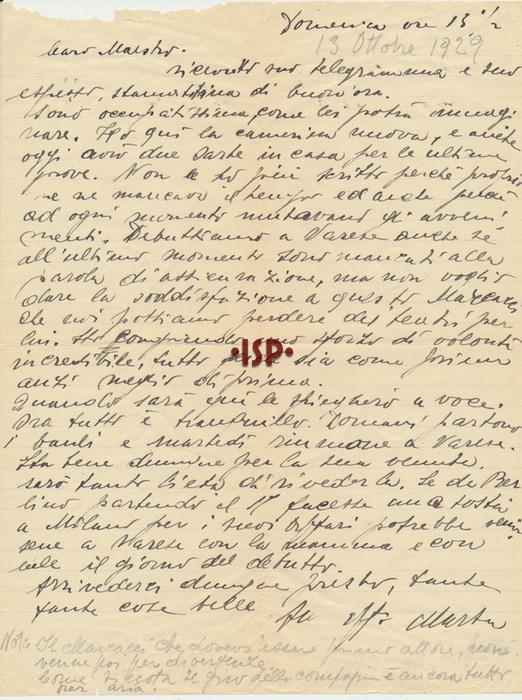 Domenica ore 13 ½
13 Ottobre 1929
Caro Maestro.
ricevuto suo telegramma e suo
espresso, stamattina di buon'ora.
Sono occupatissima, come lei potrà immagi
nare. Ho quì la cameriera nuova, e anche
oggi avrò due sarte in casa per le ultime
prove. Non le ho più scritto perchè
me ne mancava il tempo ed anche perchè
ad ogni momento mutavano gli avveni
menti. Debuttiamo a Varese anche se
all'ultimo momento sono mancati alla
parola di assicurazione, ma non voglio
dare la soddisfazione a questo Marcacci
che noi possiamo perdere dei teatri per
lui. Sto compiendo uno sforzo di volontà
incredibile, tutto sia come prima
anzi meglio di prima.
Quando sarà quì le spiegherò a voce.
Ora tutto è tranquillo. Domani partono
i bauli e martedì riunione a Varese.
Sta bene dunque per la sua venuta.
sarò tanto lieta di rivederla. Se da Ber
lino partendo il 17 facesse una sosta
a Milano per i suoi affari potrebbe venir
sene a Varese con la mamma e con
me il giorno del debutto.
Arrivederci dunque presto, tante
tante cose belle
Sua aff. Marta
Nota Il Marcacci che doveva essere primo attore, non
venne poi per divergenze
Come si nota il giro della compagnia è ancora tutto
per aria.
ISP